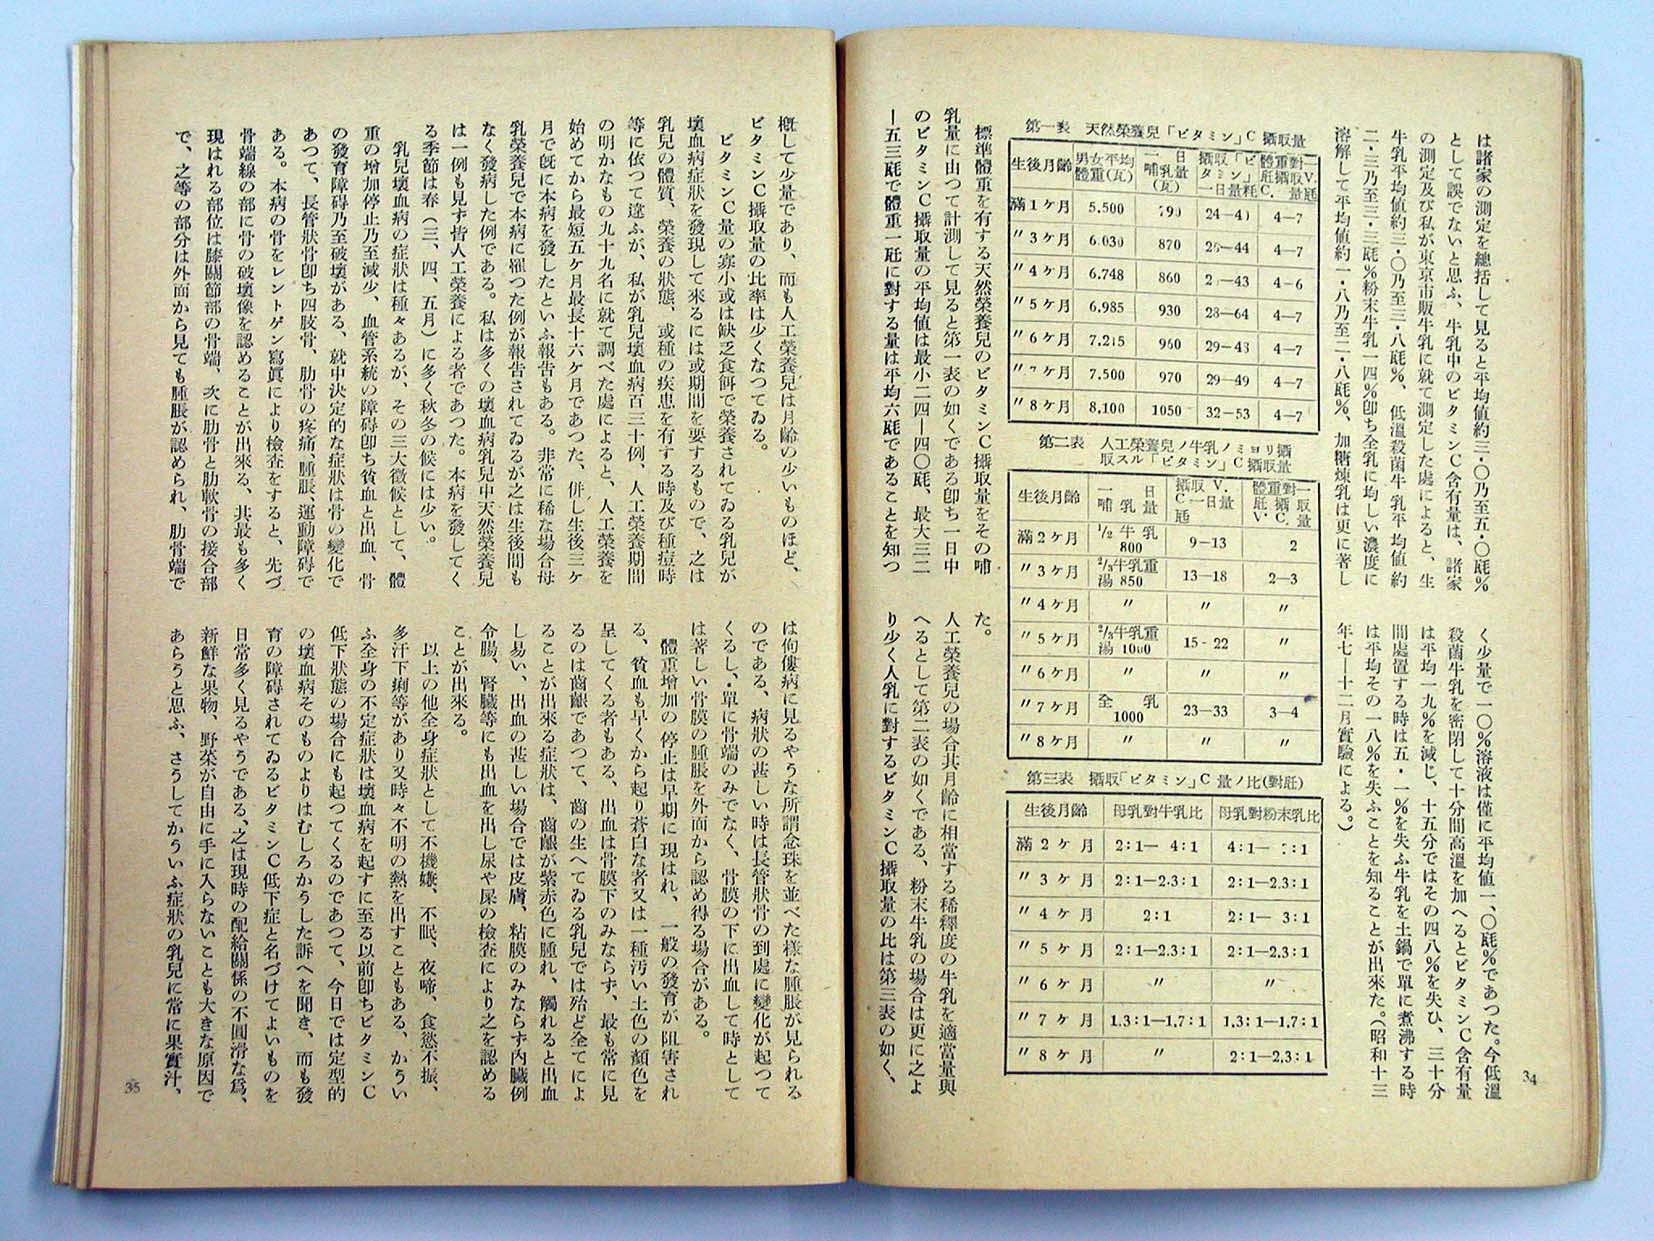 は諸家の測定を總括して見ると平均値約三・〇乃至五・〇瓱％
として誤でないと思ふ、牛乳中のビタミンC含有量は、諸家
の測定及び私が東京市販牛乳に就て測定した處によると、生
牛乳平均値約三・〇乃至三・八瓱％、低溫殺菌牛乳平均値約
二・三乃至三・三瓱％粉末牛乳一四％卽ち全乳に均しい濃度に
溶解して平均値約一・八乃至二・八瓱％、加糖煉乳は更に著し
く少量で一〇％溶液は僅に平均値一、〇瓱％であつた。今低溫
殺菌牛乳を密閉して十分間高溫を加へるとビタミンC含有量
は平均一九％を減じ、十五分ではその四八％を失ひ、三十分
間處置する時は五・一％を失ふ牛乳を土鍋で單に煮沸する時
は平均その一八％を失ふことを知ることが出來た。（昭和十三
年七—十二月實驗による。）
第一表 天然榮養兒「ビタミン」C 攝取量
生後月齡 男女平均體重(瓦) 一日哺乳量(瓦) 攝取「ビタミン」C一日量瓱 體重對一瓩V.C.攝取量瓱
滿1ケ月 5.500 790 4—7
〃3ケ月 6.030 870 4—7
〃4ケ月 6.748 860 4-6
〃5ケ月 6.985 930 28—64 4—7
〃6ケ月 7.215 960 4—7
〃7ケ月 7.500 970 29—49 4—7
〃8ケ月 8.100 1050 32—53 4—7
第二表 人工榮養兒ノ牛乳ノミヨリ攝
取スル「ビタミン」C 攝取量
生後月齡 一日哺乳量 攝取V.C一日量瓱 體重對一瓩V.C.攝取量
滿2ケ月 1/2牛乳 800 9-13 2
〃3ケ月 2/3牛乳重湯 850 13—18 2—3
〃4ケ月 〃 〃 〃
〃5ケ月 2/3牛乳重湯 1000 15-22 〃
〃6ケ月 〃 〃 〃
〃7ケ月 全乳 1000 23—33 3—4
〃8ケ月 〃 〃 〃
第三表 攝取「ビタミン」C 量ノ比(對瓩)
生後月齡 母乳對牛乳比 母乳對粉末乳比
滿2ケ月 2:1— 4:1
〃3ケ月 2:1—2.3:1 2:1—2.3:1
〃4ケ月 2:1 2:1— 3:1
〃5ケ月 2:1—2.3:1 2:1—2.3:1
〃6ケ月 〃 〃
〃7ケ月 1.3:1—1.7:1 1.3:1—1.7:1
〃8ケ月 〃 2:1—2.3:1
標準體重を有する天然榮養兒のビタミンC攝取量をその哺
乳量に由つて計測して見ると第一表の如くである卽ち一日中
のビタミンC攝取量の平均値は最小二四—四〇瓱、最大三二
—五三瓱で體重一瓩に對する量は平均六瓱であることを知つ
た。
人工榮養兒の場合其月齡に相當する稀釋度の牛乳を適當量與
へるとして第二表の如くである、粉末牛乳の場合は更に之よ
り少く人乳に對するビタミンC攝取量の比は第三表の如く、
34
槪して少量であり、而も人工榮養兒は月齡の少いものほど、
ビタミンC攝取量の比率は少くなつてゐる。
ビタミンC量の寡小或は缺乏食餌で榮養されてゐる乳兒が
壞血病症狀を發現して來るには或期間を要するもので、之は
乳兒の體質、榮養の狀態、或種の疾患を有する時及び種痘時
等に依つて違ふが、私が乳兒壞血病百三十例、人工榮養期間
の明かなもの九十九名に就て調べた處によると、人工榮養を
始めてから最短五ケ月最長十六ケ月であつた、併し生後三ケ
月で旣に本病を發したといふ報告もある。非常に稀な場合母
乳榮養兒で本病に罹つた例が報告されてゐるが之は生後間も
なく發病した例である。私は多くの壞血病乳兒中天然榮養兒
は一例も見ず皆人工榮養による者であつた。本病を發してく
る季節は春（三、四、五月）に多く秋冬の候には少い。
乳兒壞血病の症狀は種々あるが、その三大徵候として、體
重の增加停止乃至減少、血管系統の障碍卽ち貧血と出血、骨
の發育障碍乃至破壞がある、就中決定的な症狀は骨の變化で
あつて、長管狀骨卽ち四肢骨、肋骨の疼痛、腫脹、運動障碍で
ある。本病の骨をレントゲン寫眞により檢査をすると、先づ
骨端線の部に骨の破壞像を認めることが出來る、其最も多く
現はれる部位は膝關節部の骨端、次に肋骨と肋軟骨の接合部
で、之等の部分は外面から見ても腫脹が認められ、肋骨端で
は佝僂病に見るやうな所謂念珠を並べた樣な腫脹が見られる
のである、病狀の甚しい時は長管狀骨の到處に變化が起つて
くるし、單に骨端のみでなく、骨膜の下に出血して時として
は著しい骨膜の腫脹を外面から認め得る場合がある。
體重增加の停止は早期に現はれ、一般の發育が阻害され
る、貧血も早くから起り蒼白な者又は一種汚い土色の顏色を
呈してくる者もある、出血は骨膜下のみならず、最も常に見
るのは齒齦であつて、齒の生へてゐる乳兒では殆ど全てによ
ることが出來る症狀は、齒齦が紫赤色に腫れ、觸れると出血
し易い、出血の甚しい場合では皮膚、粘膜のみならず內臟例
令腸、腎臟等にも出血を出し尿や屎の檢査により之を認める
ことが出來る。
以上の他全身症狀として不機嫌、不眠、夜啼、食慾不振、
多汗下痢等があり又時々不明の熱を出すこともある、かうい
ふ全身の不定症狀は壞血病を起すに至る以前卽ちビタミンC
低下狀態の場合にも起つてくるのであつて、今日では定型的
の壞血病そのものよりはむしろかうした訴へを聞き、而も發
育の障碍されてゐるビタミンC低下症と名づけてよいものを
日常多く見るやうである、之は現時の配給關係の不圓滑な爲、
新鮮な果物、野菜が自由に手に入らないことも大きな原因で
あらうと思ふ、さうしてかういふ症狀の乳兒に常に果實汁、
35